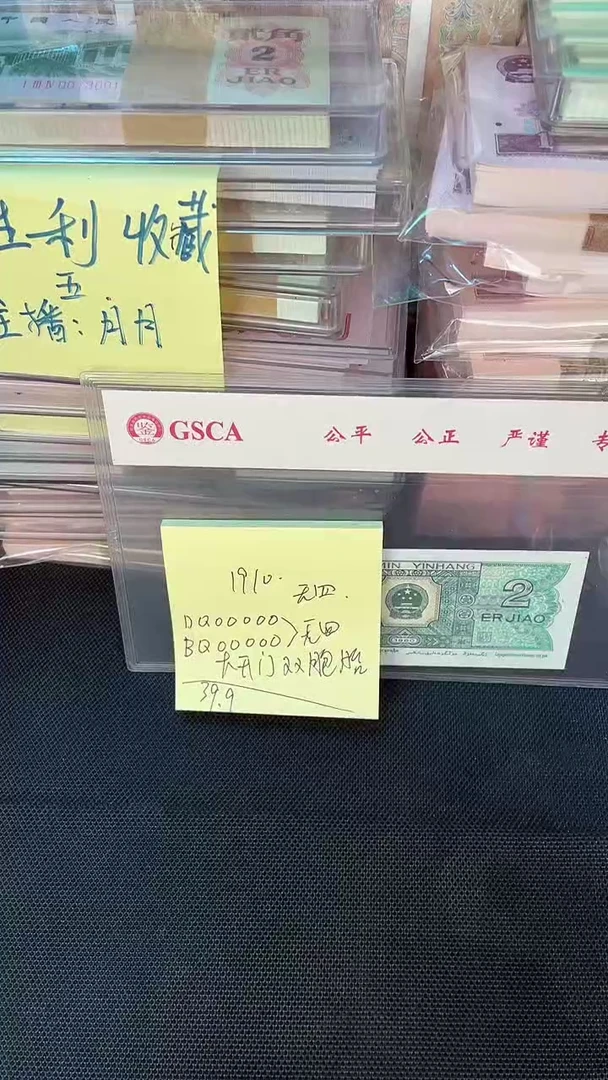 中国人民
贰角
2
ER
JIAO
胜利收藏
五
主播：月月
GSCA
公平 公正 严谨 专
1910.
无四.
DQ00000
BQ00000
无四
大开门双胞胎
39.9
MIN YINHANG
2
ER JIAO